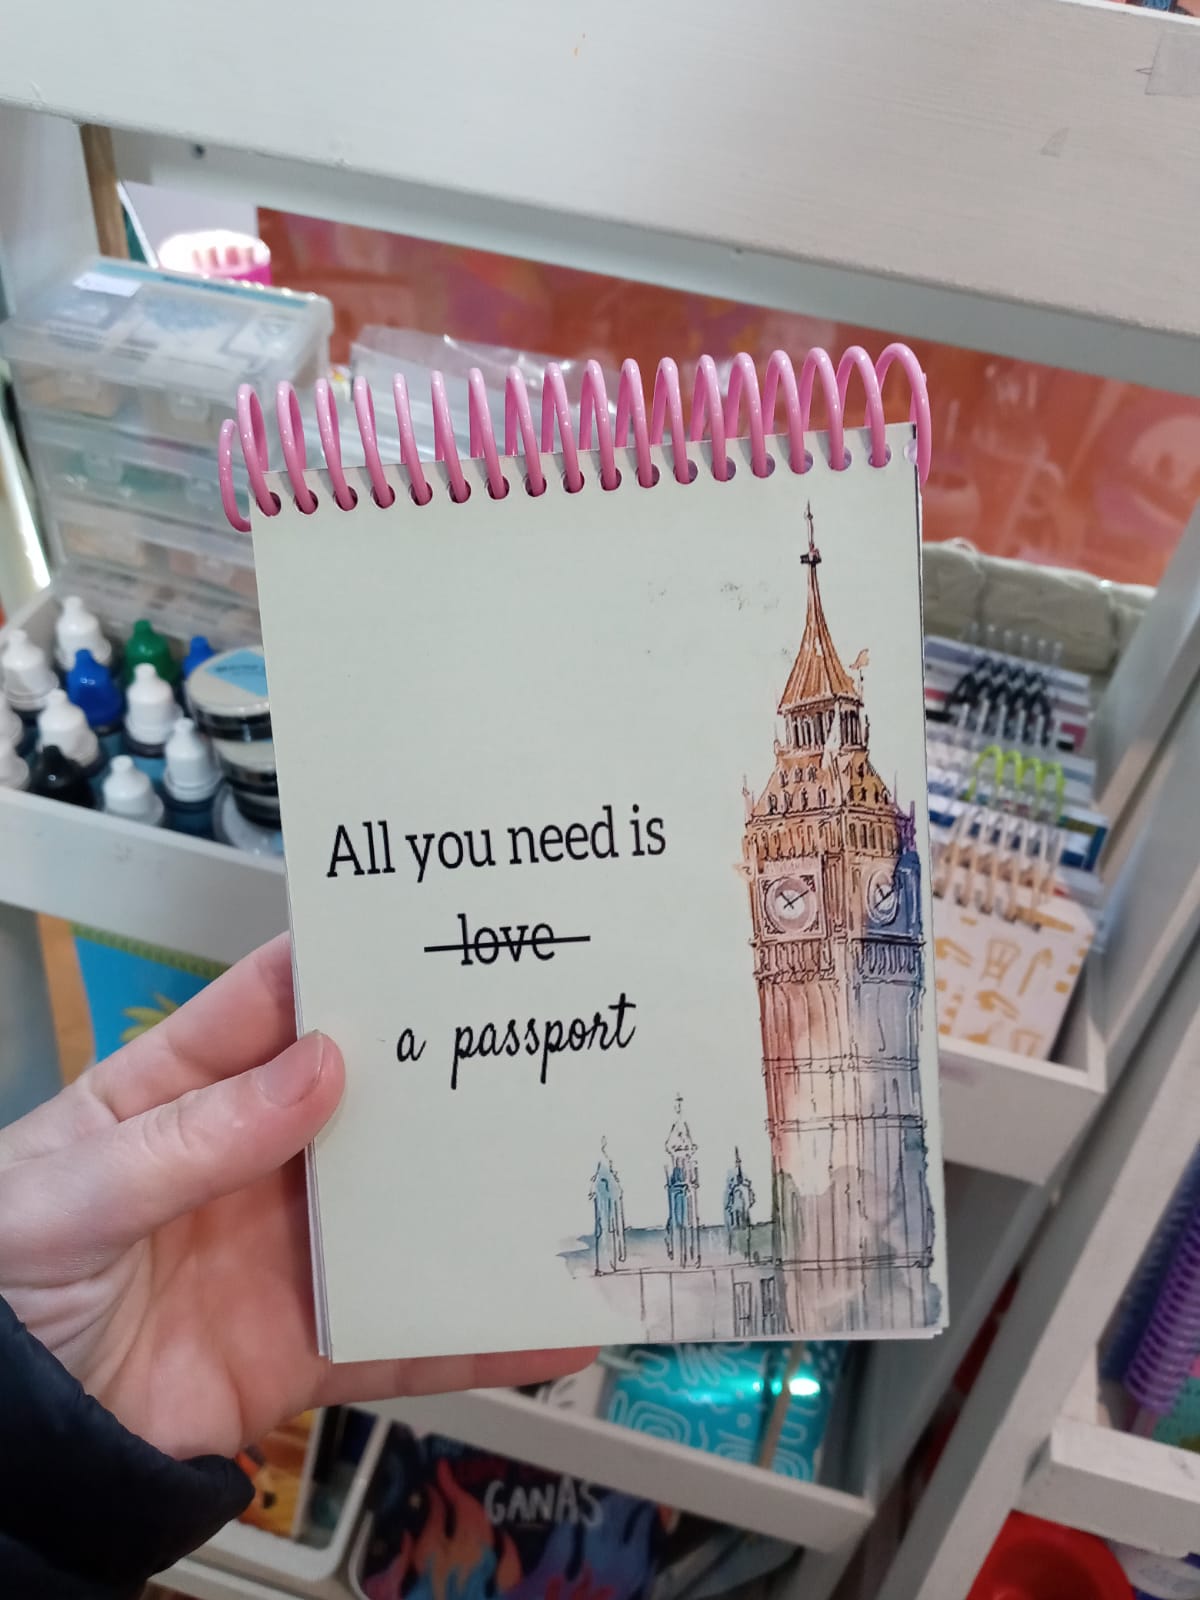 All you need is
love
a passport
GANAS